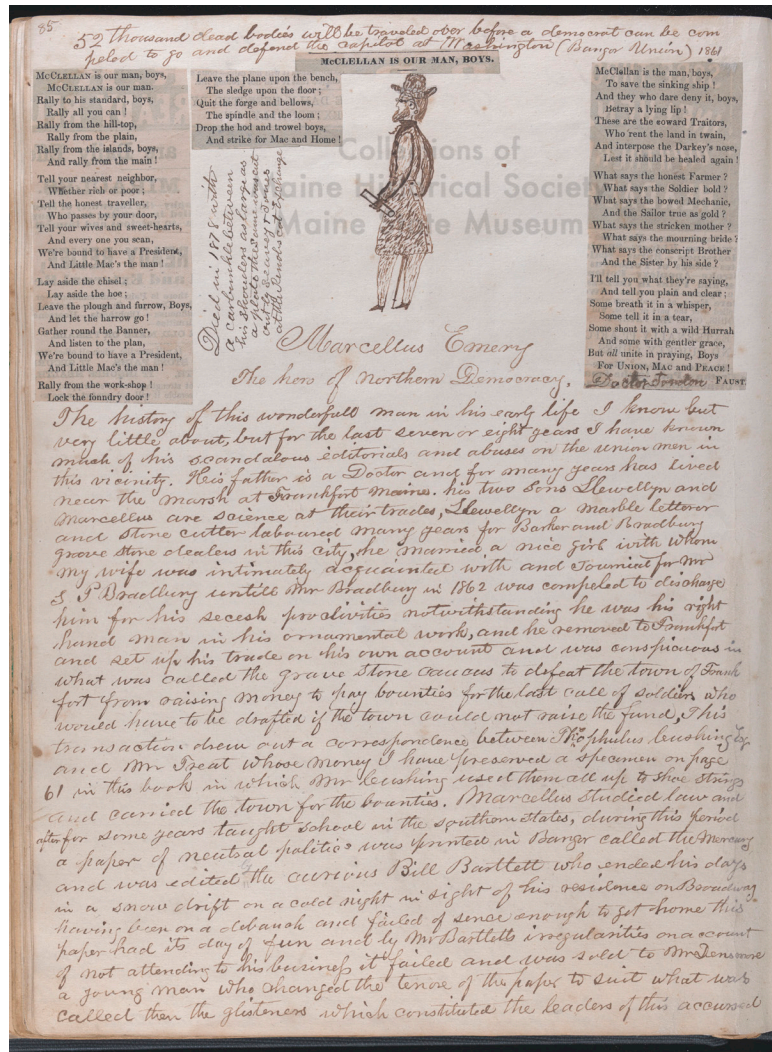 85
52 thousand dead bodies will be traveled over before a democrat can be com
peled to go and defend the capitol at Washington (Bangor Union) 1861
McCLELLAN IS OUR MAN, BOYS.
McCLELLAN is our man, boys,
McCLELLAN is our man.
Rally to his standard, boys,
Rally all you can!
Rally from the hill-top,
Rally from the plain,
Rally from the islands, boys,
And rally from the main!
Tell your nearest neighbor,
Whether rich or poor;
Tell the honest traveller,
Who passes by your door,
Tell your wives and sweet-hearts,
And every one you scan,
We're bound to have a President,
And Little Mac's the man!
Lay aside the chisel;
Lay aside the hoe;
Leave the plough and furrow, Boys,
And let the harrow go!
Gather round the Banner,
And listen to the plan,
We're bound to have a President,
And Little Mac's the man!
Rally from the work-shop!
Lock the foundry door!
Leave the plane upon the bench,
The sledge upon the floor;
Quit the forge and bellows,
The spindle and the loom;
Drop the hod and trowel boys,
And strike for Mac and Home!
McClellan is the man, boys,
To save the sinking ship!
And they who dare deny it, boys,
Betray a lying lip!
These are the coward Traitors,
Who rent the land in twain,
And interpose the Darkey's nose,
Lest it should be healed again!
What says the honest Farmer?
What says the Soldier bold?
What says the bowed Mechanic,
And the Sailor true as gold?
What says the stricken mother?
What says the mourning bride?
What says the conscript Brother
And the Sister by his side?
I'll tell you what they're saying,
And tell you plain and clear;
Some breath it in a whisper,
Some tell it in a tear,
Some shout it with a wild Hurrah
And some with gentler grace,
But all unite in praying, Boys
For UNION, MAC and PEACE!
Doctor FAUST.
Died in 1878 with
a carbunkle between
his shoulders as large as
a plate the same was cut
at the Penobscot Exchange
Collections of
Maine Historical Society
Maine State Museum
Marcellus Emery
The hero of Northern Democracy.
The history of this wonderfull man in his early life I know but
very little about, but for the last seven or eight years I have known
much of his scandalous editorials and abuses on the union men in
this vicinity. His father is a Doctor and for many years has lived
near the marsh at Frankfort Maine. his two sons Llewellyn and
Marcellus are science at their trades, Llewellyn a marble letteror
and stone cutter laboured many years for Barker and Bradbury
grove stone dealers in this city, he married a nice girl with whom
my wife was intimately acquainted with and Journied for Mr
S P Bradbury untill Mr Bradbury in 1862 was compeled to discharge
him for his secesh proclivities notwithstanding he was his right
hand man in his ornamental work, and he removed to Frankfort
and set up his trade on his own account and was conspicuous in
what was called the grave stone caucus to defeat the town of Frank
fort from raising money to pay bounties for the last call of soldiers who
would have to be drafted if the town could not raise the fund, This
transaction drew out a correspondence between Theophulus Cushing Esq
and Mr Treat whose money I have preserved a specimen on page
61 in this book in which Mr Cushing used them all up to shoe strings
and carried the town for the bounties. Marcellus studied law and
after for some years taught school in the southern states, during this period
a paper of neutral politics was printed in Bangor called the Mercury
and was edited the curious Bill Bartlett who ended his days
in a snow drift on a cold night in sight of his residence on Broadway
having been on a debauch and failed of sence enough to get home this
paper had its day of fun and by Mr Bartletts irregularities on account
of not attending to his business it failed and was sold to Mr
a young man who changed the tenor of the paper to suit what was
called then the glisteners which constituted the leaders of this accursed